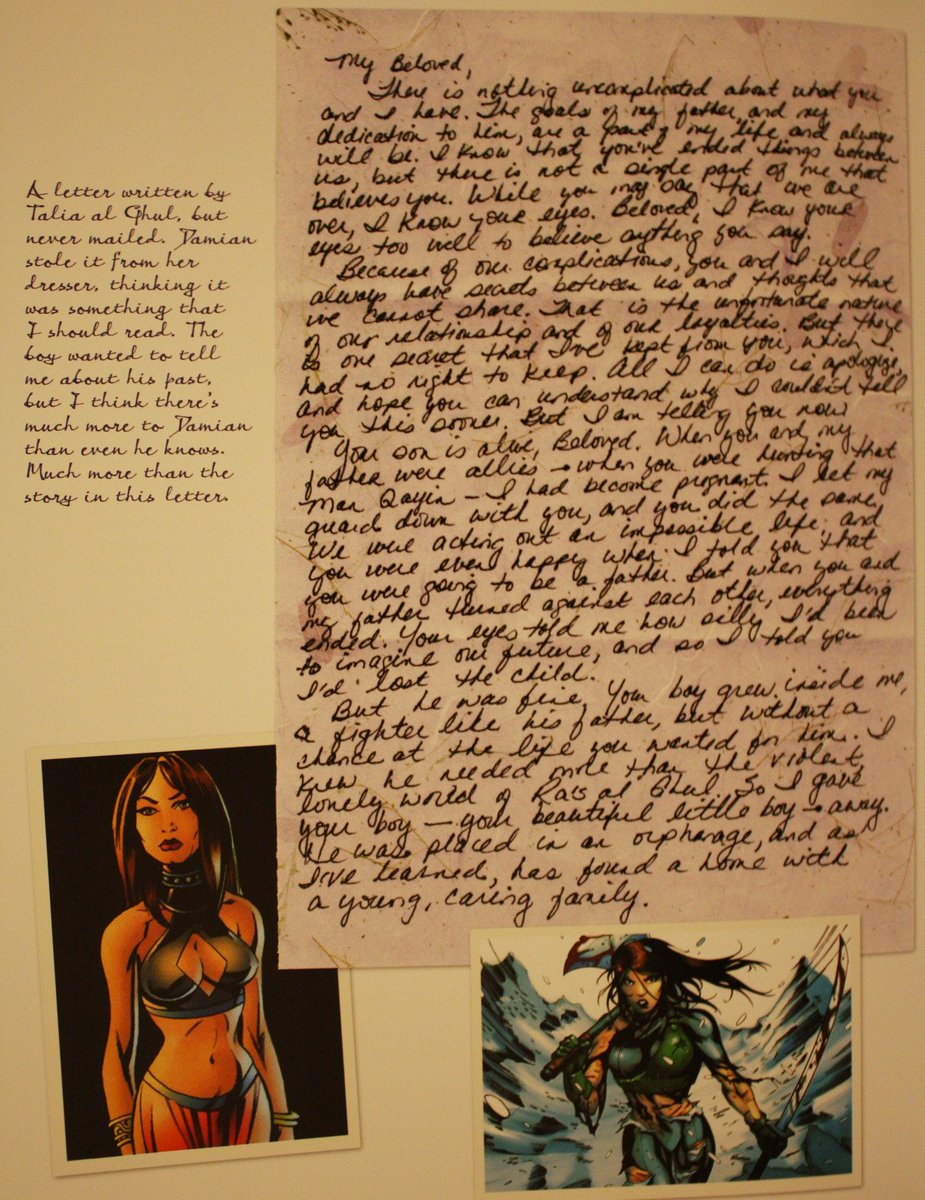 A letter written by
Talia al Ghul, but
never mailed. Damian
stole it from her
dresser, thinking it
was something that
I should read. The
boy wanted to tell
me about his past,
but I think there's
much more to Damian
than even he knows.
Much more than the
story in this letter.
My Beloved,
There is nothing uncomplicated about what you
and I have. The goals of my father, and my
dedication to him, are a part of my life and always
will be. I know that you've ended things between
us, but there is not a single part of me that
believes you. While you may say that we are
over, I know your eyes. Beloved, I know your
eyes too well to believe anything you say.
Because of our complications, you and I will
always have secrets between us and thoughts that
we cannot share. That is the unfortunate nature
of our relationship and of our loyalties. But there
is one secret that I've kept from you, which I
had no right to keep. All I can do is apologize,
and hope you can understand why I couldn't tell
you this sooner. But I am telling you now
Your son is alive, Beloved. When you and my
father were allies – when you were hunting that
man Qayin – I had become pregnant. I let my
guard down with you, and you did the same.
We were acting out an impossible life, and
you were even happy when I told you that
you were going to be a father. But when you and
my father turned against each other, everything
ended. Your eyes told me how silly I'd been
to imagine our future, and so I told you
I'd lost the child.
But he was fine. Your boy grew inside me,
a fighter like his father, but without a
chance at the life you wanted for him. I
knew he needed more than the violent,
lonely world of Ra's al Ghul. So I gave
your boy – your beautiful little boy – away.
He was placed in an orphanage, and as
I've learned, has found a home with
a young, caring family.